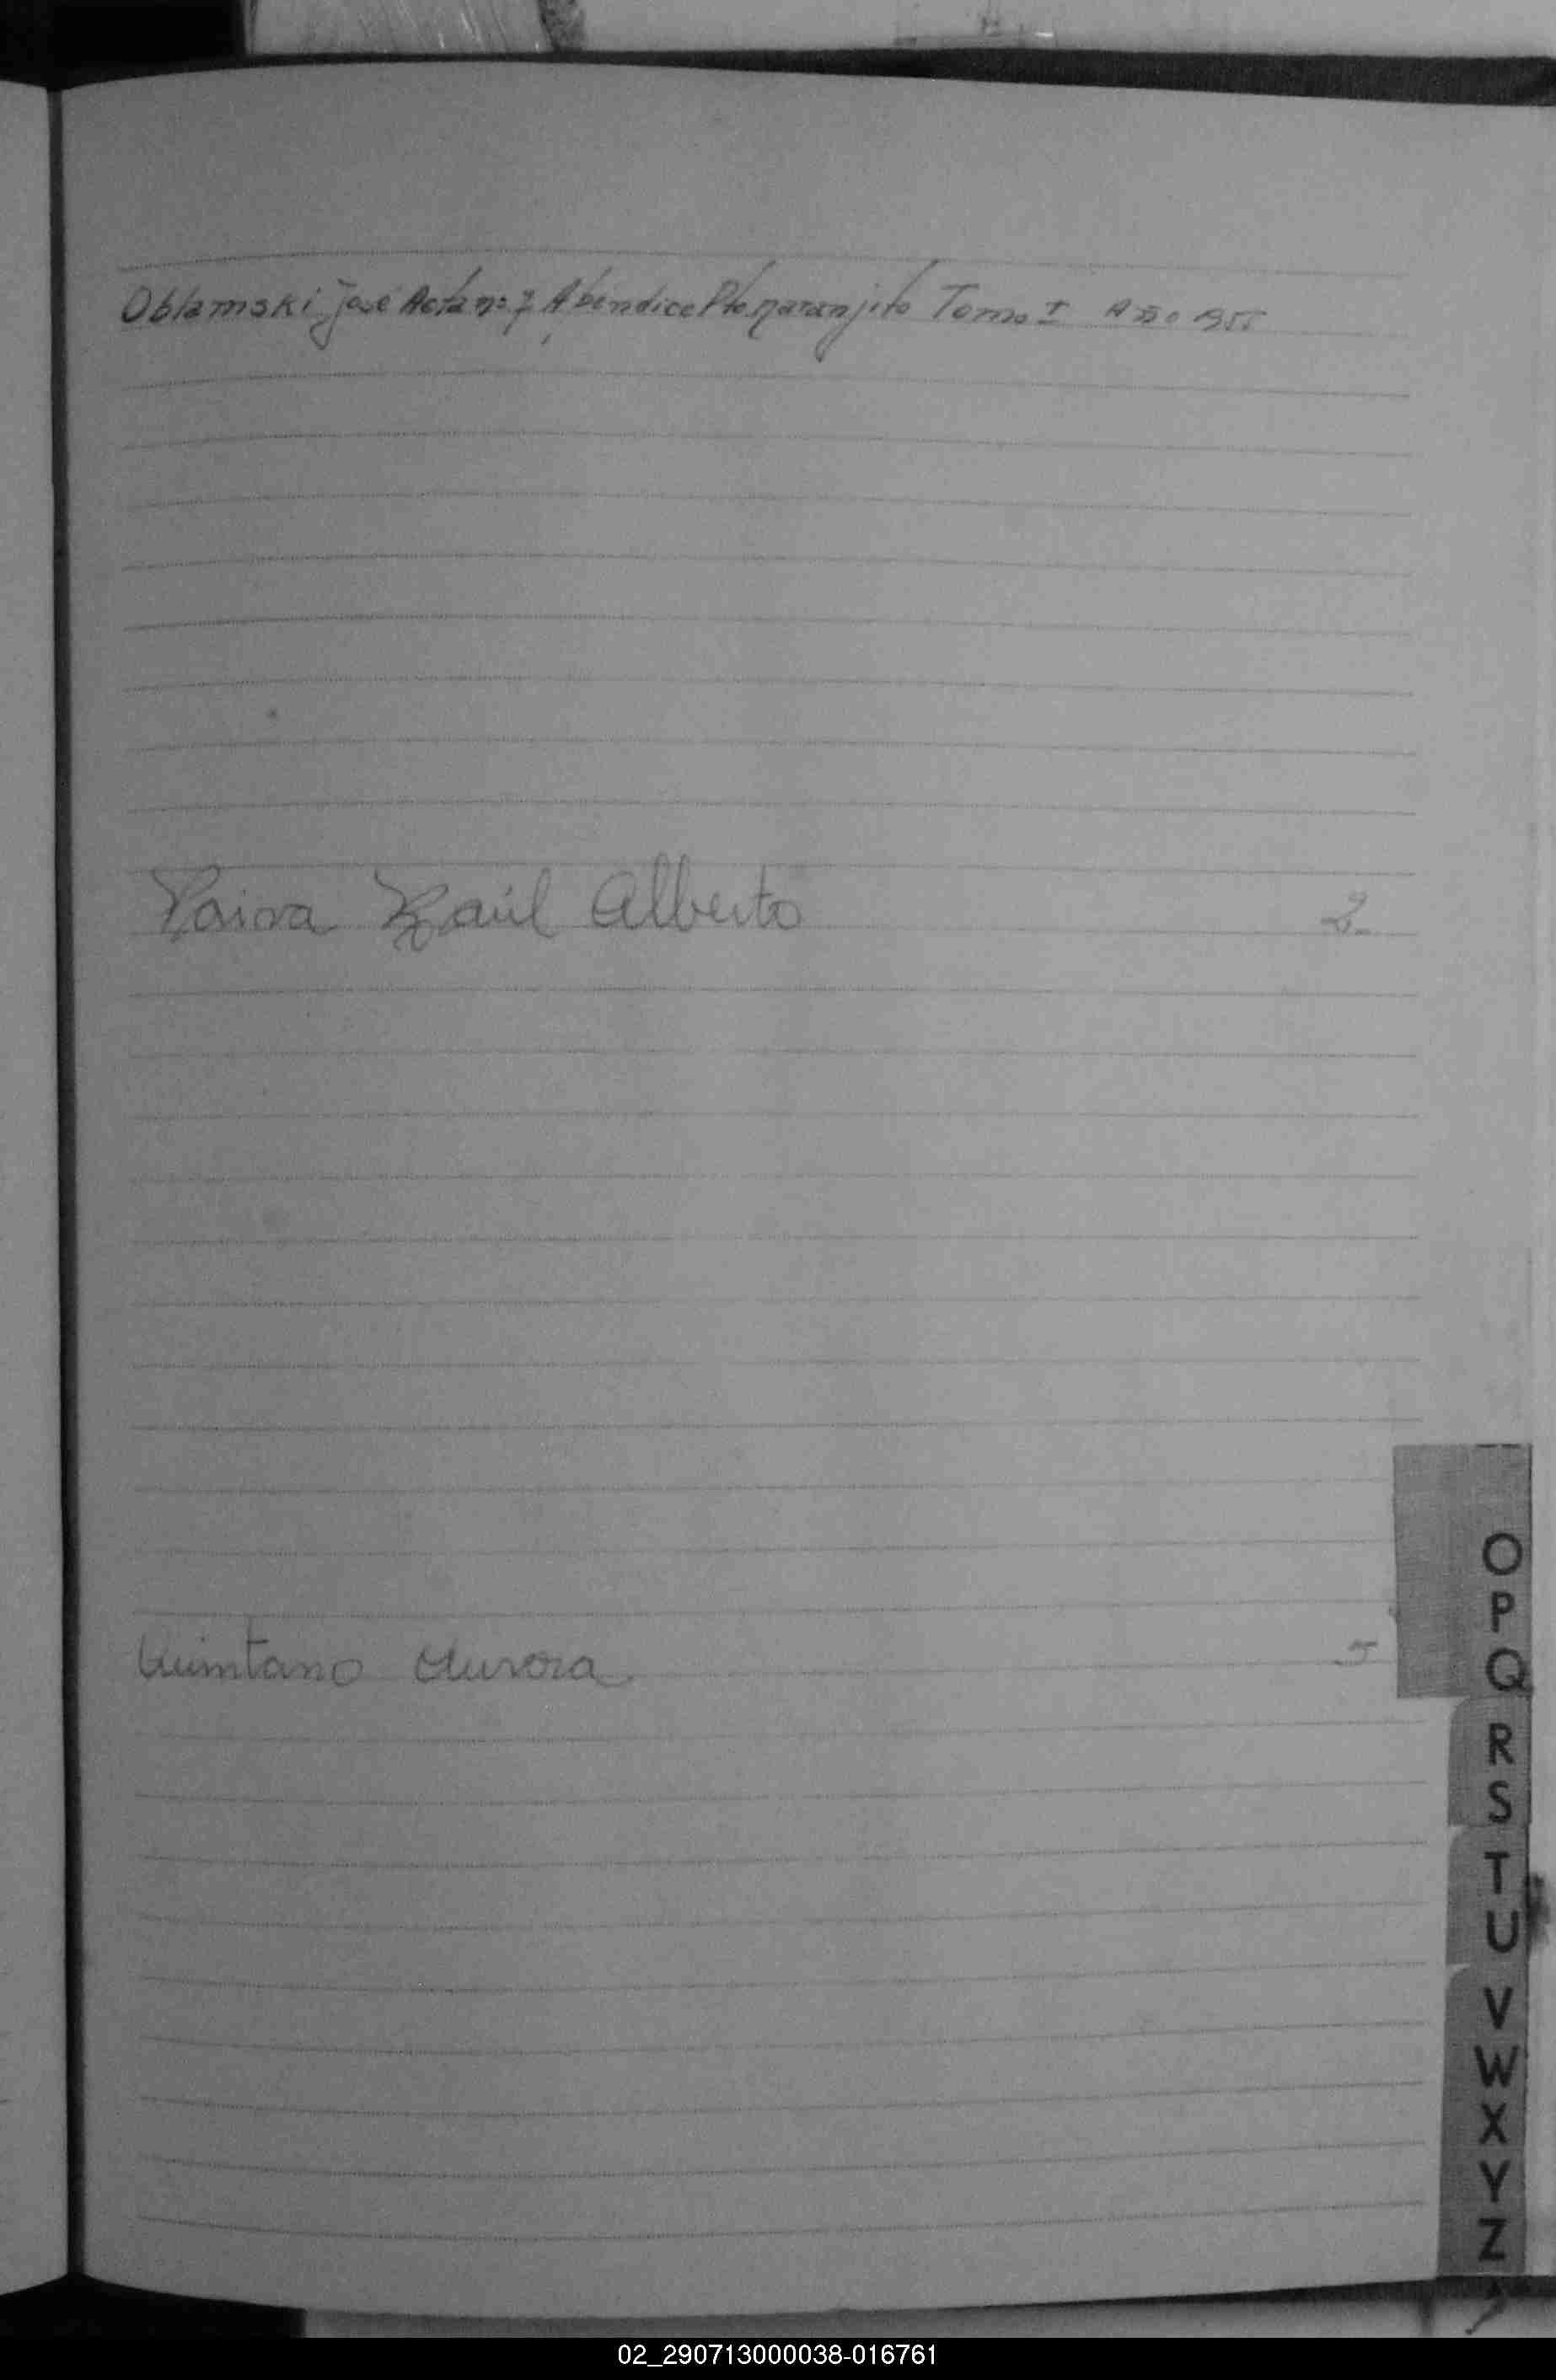 Oblamski José Acta nº 7 Abéndice Pto naranjito Tomo I Año 955
Paiva Raúl Alberto 2
Quintano Aurora 5
O
P
Q
R
S
T
U
V
W
X
Y
Z
02_290713000038-016761